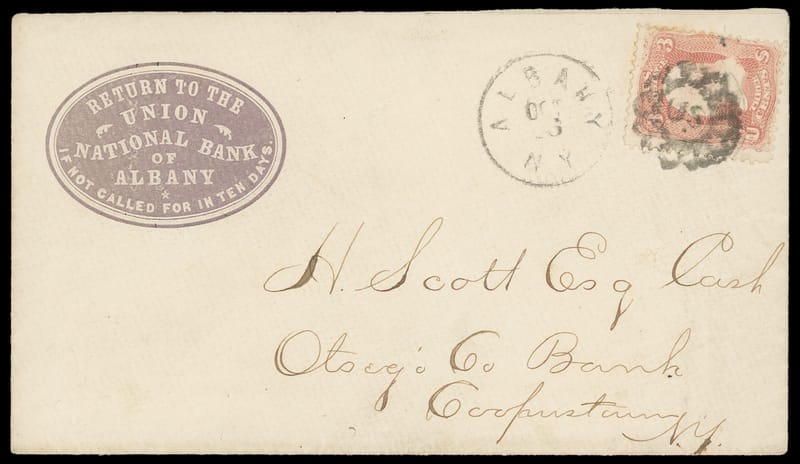 RETURN TO THE
UNION
NATIONAL BANK
OF
ALBANY
IF NOT CALLED FOR IN TEN DAYS.
ALBANY
OCT
N Y
3
U
S
H. Scott Esq Cash
Otsego Co Bank
Cooperstown
N.Y.